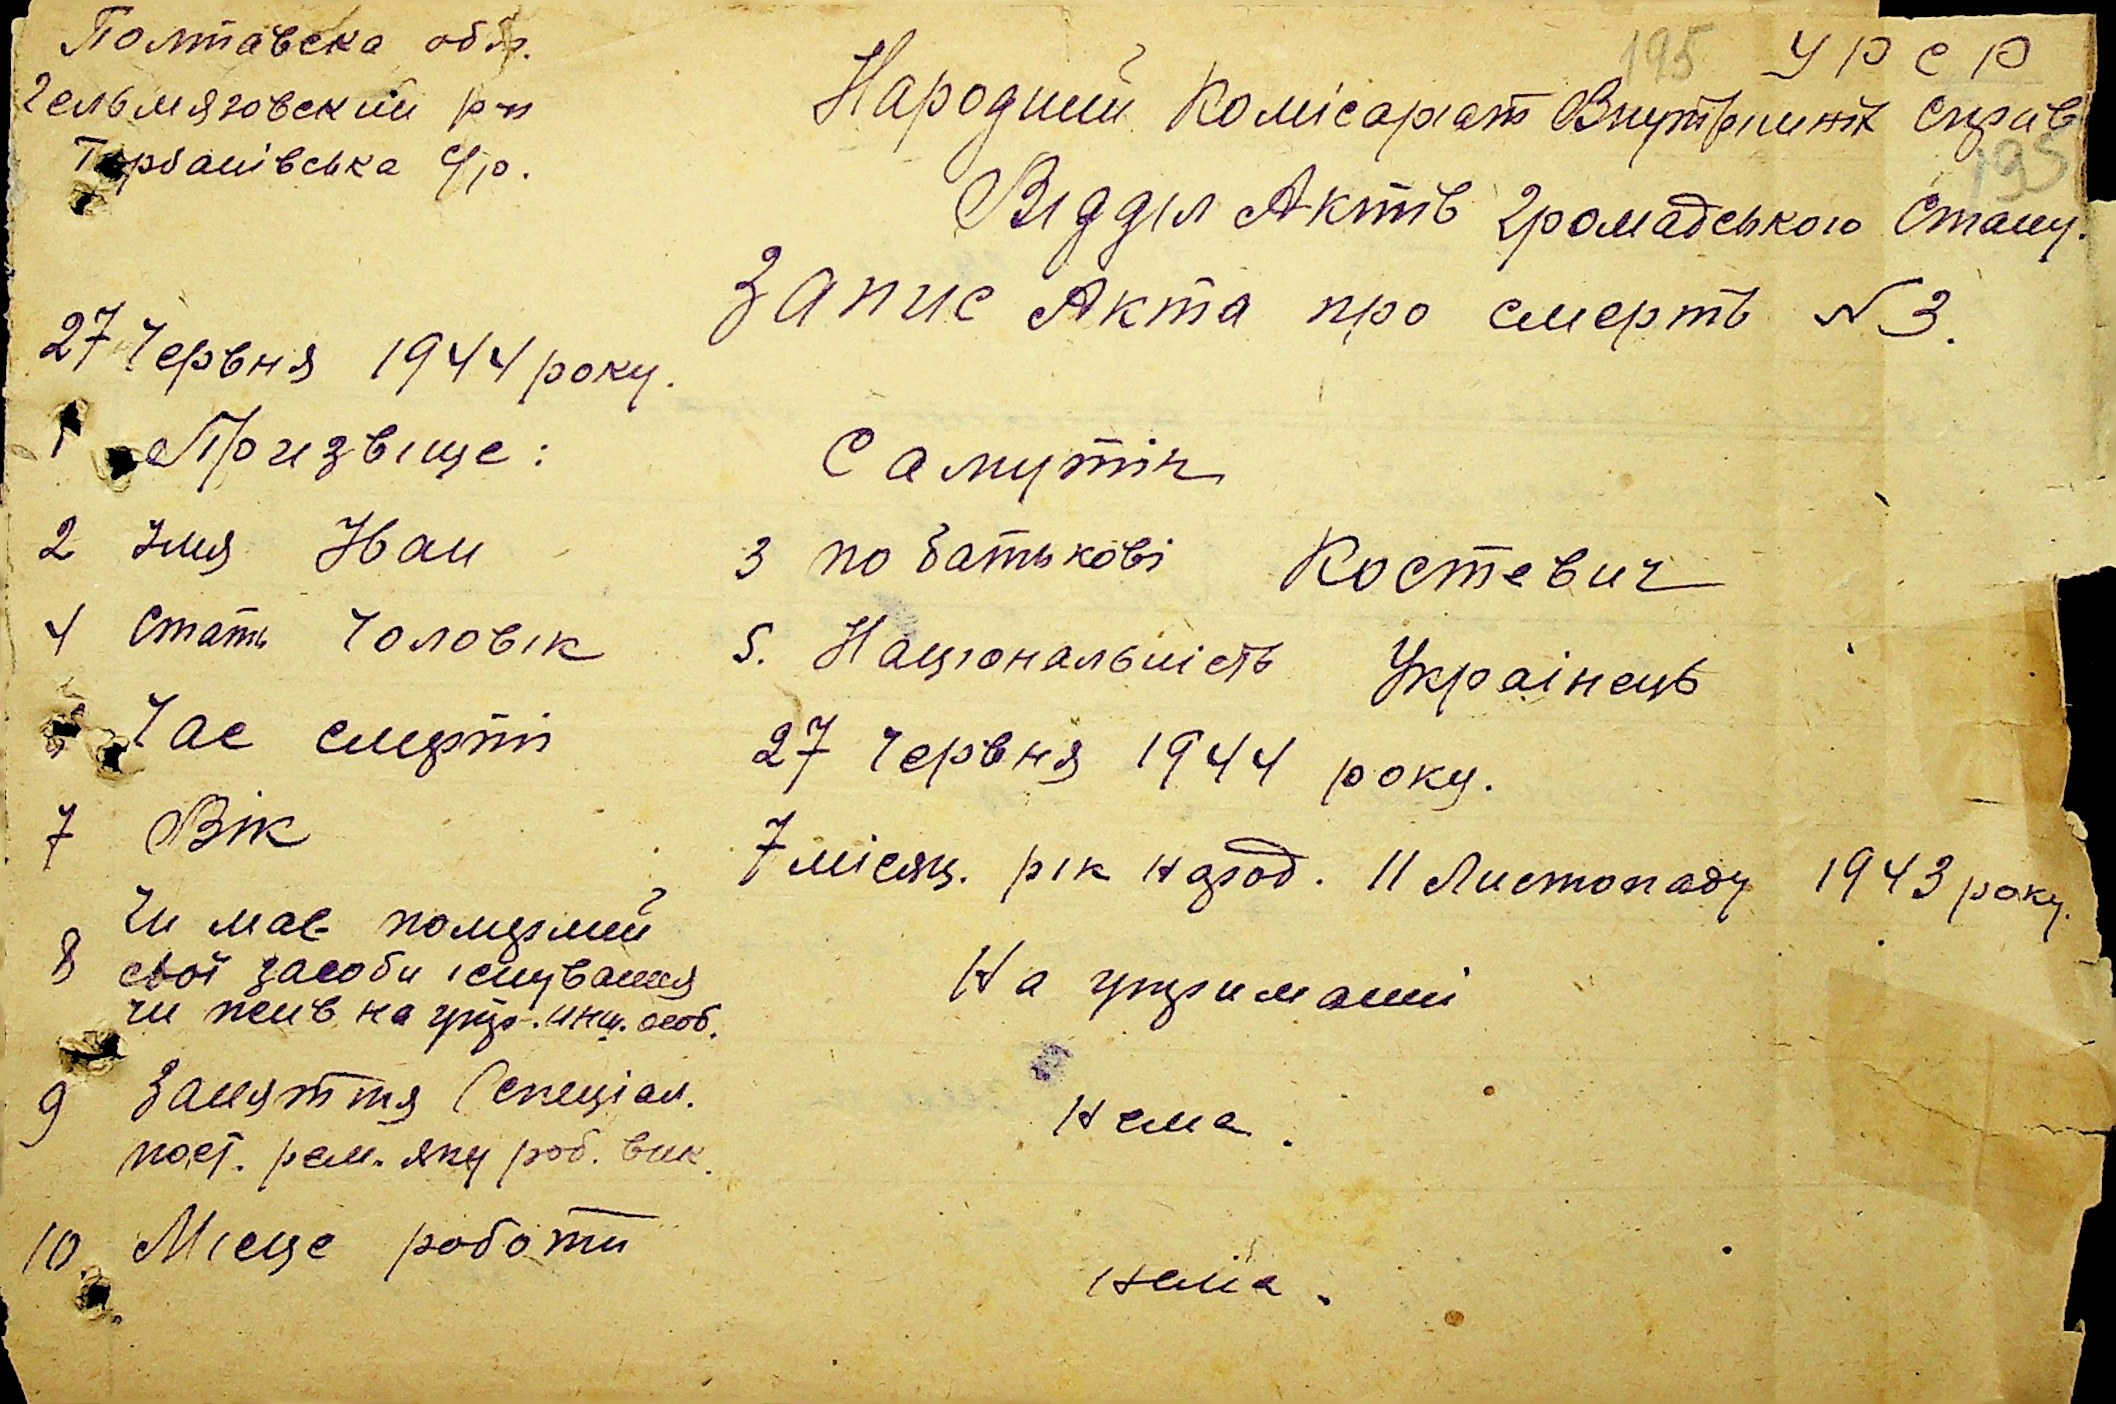 Полтавска обл.
Гельмязовский р-н
Горбанівська С/р.
195
У Р С Р
Народний Комісаріат Внутрішніх Справ
195
Відділ Актів Громадського Стану.
Запис Акта про смерть N 3.
27 Червня 1944 року.
1 Призвіще: Самутін
2 Імя Іван 3 по батькові Костевич
4 Стать Чоловік 5. Національність Украінець
Час смерті 27 Червня 1944 року.
7 Вік 7 місяц. рік народ. 11 Листопаду 1943 року.
Чи має померлий
8 свої засоби існування На утриманні
чи жив на утр. инш. особ.
9 Заняття (спеціал. Нема.
пост. рем. яку роб. вик.
10. Місце роботи нема.